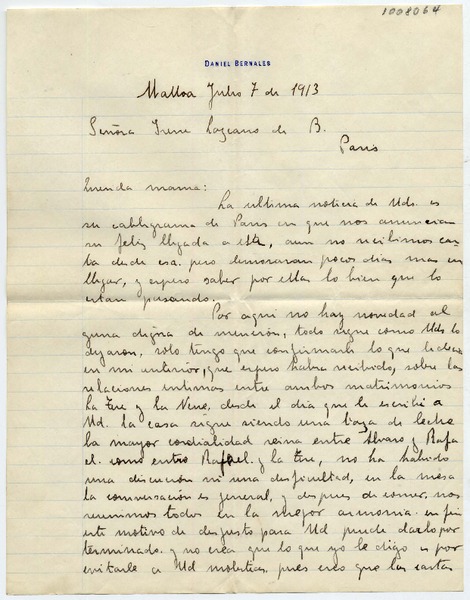 1008064
DANIEL BERNALES
Malloa Julio 7 de 1913
Señora Irene Lazcano de B.
Paris
Querida mamá:
La ultima noticia de Uds. es
su cablegrama de Paris en que nos anuncian
su feliz llegada a este, aun no recibimos car
ta desde esa. pero demoraran pocos dias mas en
llegar, y espero saber por ellas lo bien que lo
estan pasando.
Por aqui no hay novedad al
guna digna de mencion, todo sigue como Uds lo
dejaron, solo tengo que confirmarle lo que le decia
en mi anterior, que espero habra recibido, sobre las
relaciones intimas entre ambos matrimonios
La y la Nene, desde el dia que le escribi a
Ud. la casa sigue siendo una taza de leche
la mayor cordialidad reina entre Alvaro y Rafa
el. como entre Rafael y la no ha habido
una discucion ni una dificultad, en la mesa
la conversacion es general, y despues de comer, nos
reunimos todos en la mejor armonia. en fin
este motivo de desgusto para Ud puede darlo por
terminado. y no crea que lo que yo le digo es por
evitarle a Ud molestias, pues creo que las cartas